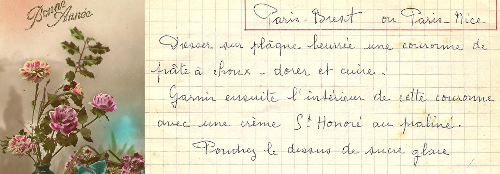 Bonne
Année
Paris-Brest ou Paris-Nice
Dresser sur plaque beurrée une couronne de
pâte à choux - dorer et cuire.
Garnir ensuite l'intérieur de cette couronne
avec une crème St Honoré au praliné.
Poudrez le dessus de sucre glace